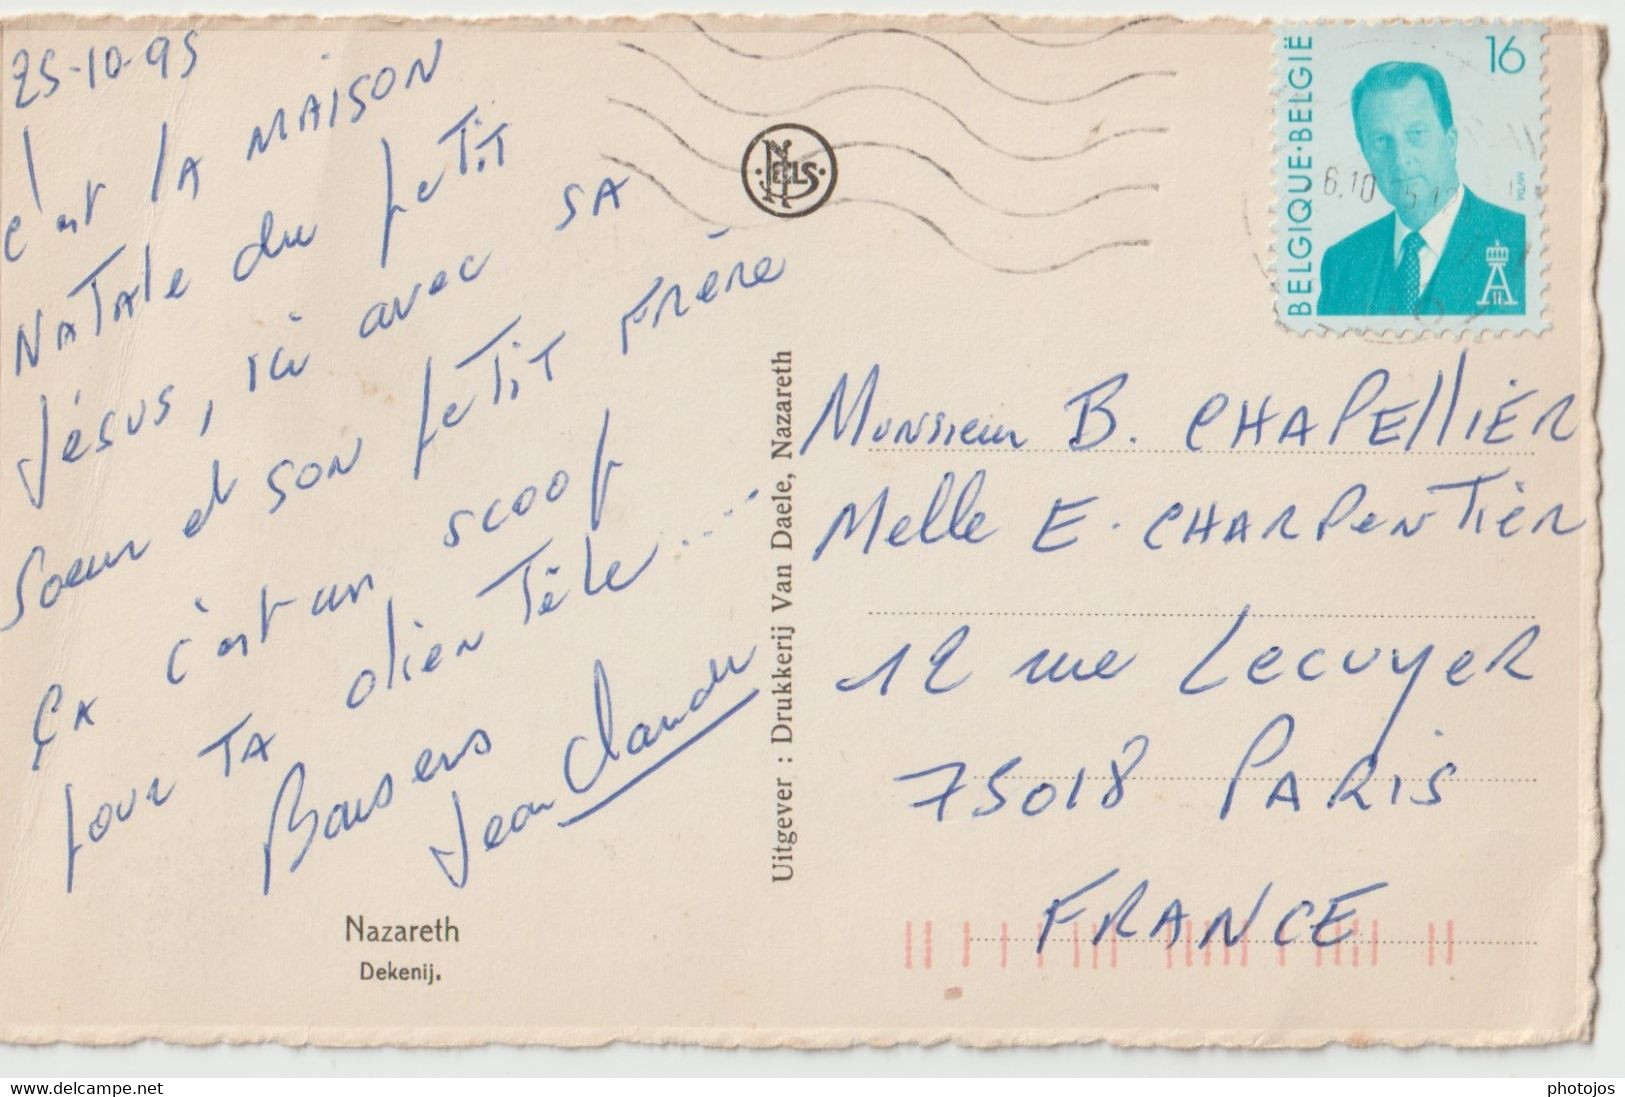 25-10-95
c'est la MAISON
NATALE du petit
Jésus, ici avec SA
Soeur et SON petit FRère
ÇA c'est un scoop
pour TA clientèle.....
Baisers
Jean Claude
Nazareth
Dekenij.
NELS
Uitgever : Drukkerij Van Daele, Nazareth
BELGIQUE·BELGIË
16
MVTM
6.10
Monsieur B. CHAPELLIER
Melle E. CHARPENTIER
12 rue Lecuyer
75018 PARIS
FRANCE
www.delcampe.net
photojos